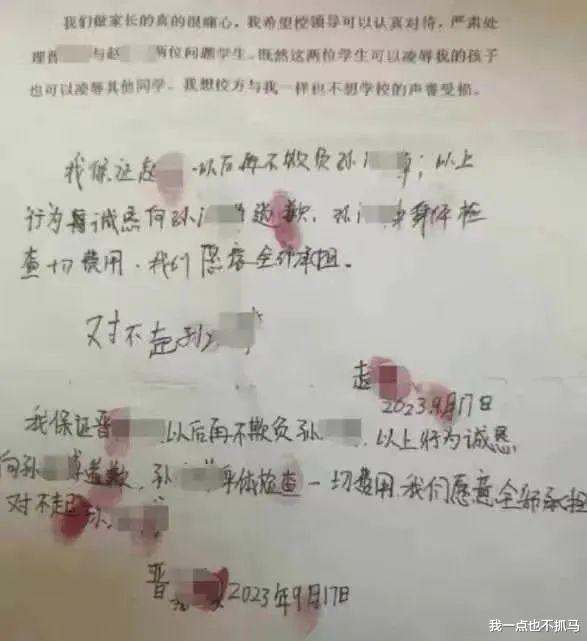 我们做家长的真的很痛心,我希望校领导可以认真对待,严肃处
理晋 与赵 两位问题学生。既然这两位学生可以凌辱我的孩子
也可以凌辱其他同学。我想校方与我一样也不想学校的声誉受损。
我保证赵 以后再不欺负孙 ;以上
行为 诚恳向孙 道歉,孙 身体检
查一切费用,我们愿意全部承担。
对不起孙
赵
2023.9月17日
我保证晋 以后再不欺负孙 ,以上行为诚恳
向孙 道歉,孙 身体检查一切费用,我们愿意全部承担
对不起 孙
晋 2023年9月17日
我一点也不抓马